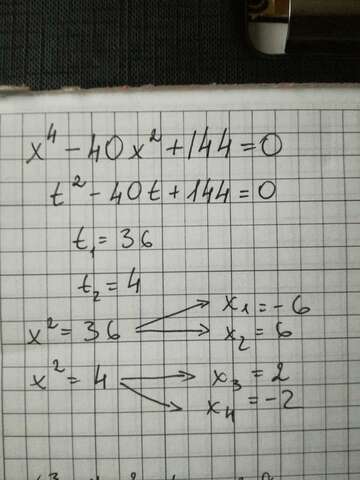 x⁴ - 40x² + 144 = 0
t² - 40t + 144 = 0
t₁ = 36
t₂ = 4
x² = 36 → x₁ = -6
→ x₂ = 6
x² = 4 → x₃ = 2
→ x₄ = -2